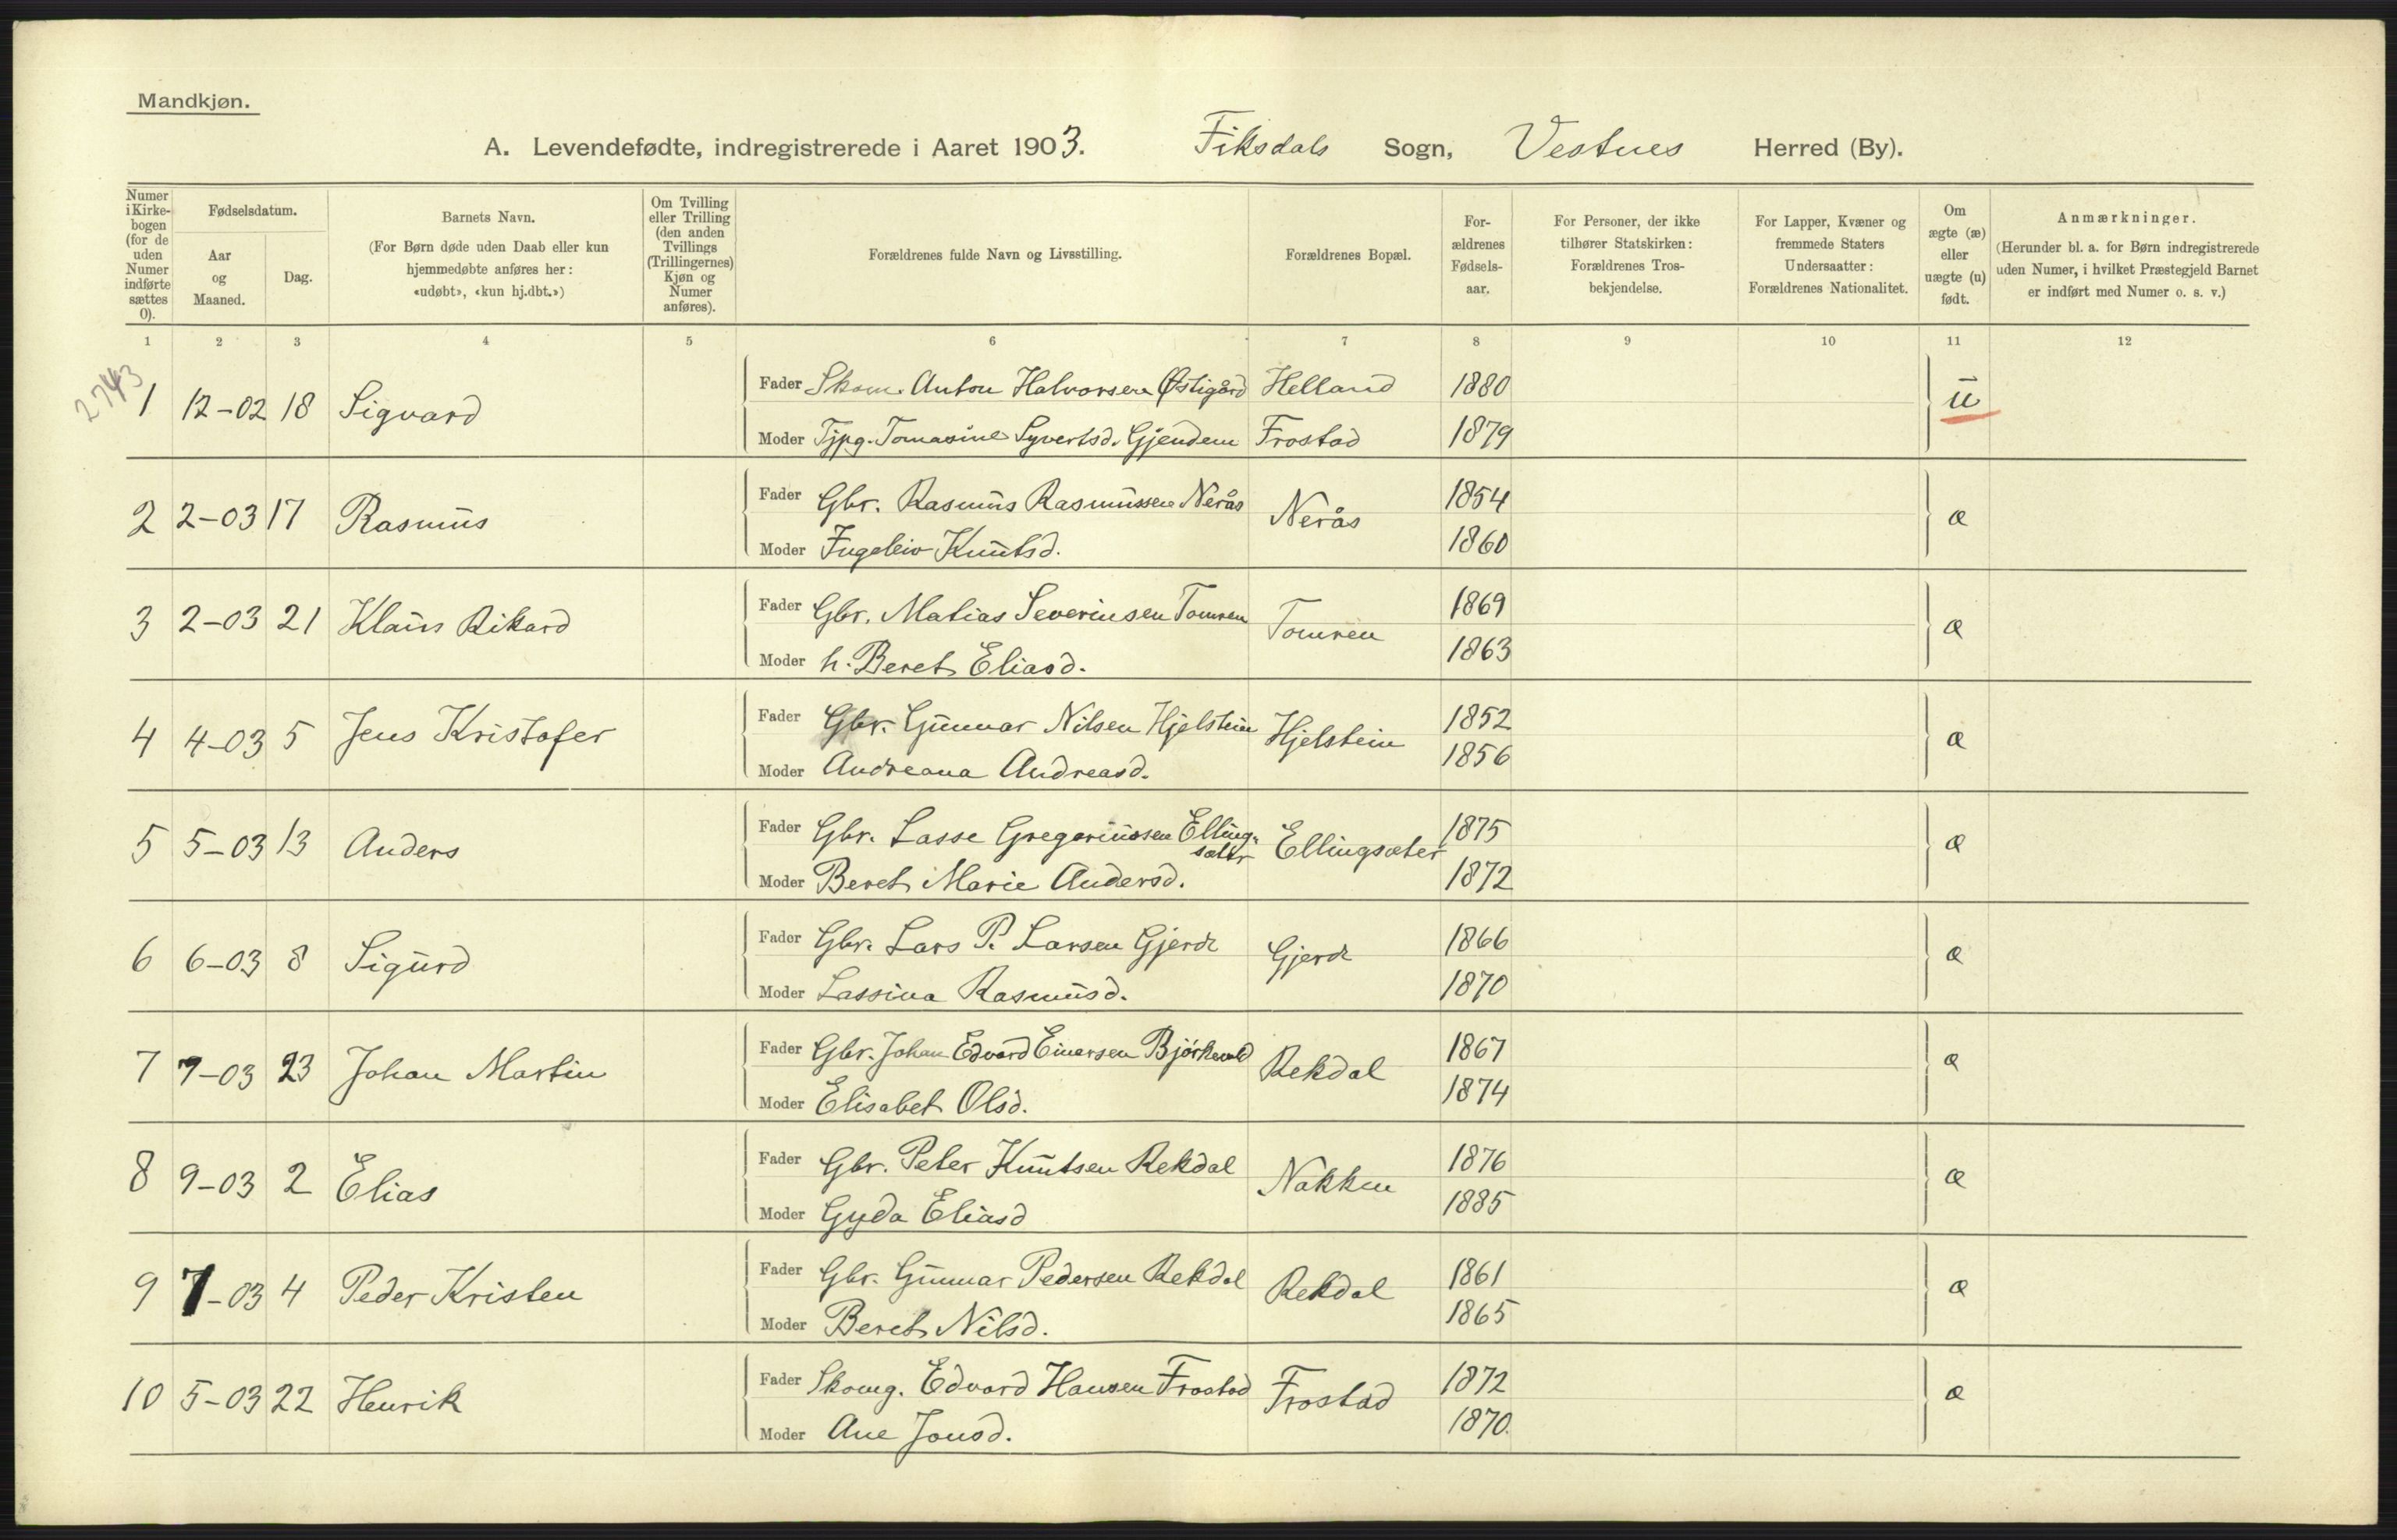 Mandkjøn.
A. Levendefødte, indregistrerede i Aaret 1903. Fiksdals Sogn, Vestnes Herred (By).
Numer i Kirkebogen (for de uden Numer indførte sættes 0).
Fødselsdatum.
Aar og Maaned.
Dag.
Barnets Navn.
(For Børn døde uden Daab eller kun hjemmedøbte anføres her: «udøbt», «kun hj.dbt.»)
Om Tvilling eller Trilling (den anden Tvillings (Trillingernes) Kjøn og Numer anføres).
Forældrenes fulde Navn og Livsstilling.
Forældrenes Bopæl.
Forældrenes Fødselsaar.
For Personer, der ikke tilhører Statskirken: Forældrenes Trosbekjendelse.
For Lapper, Kvæner og fremmede Staters Undersaatter: Forældrenes Nationalitet.
Om ægte (æ) eller uægte (u) født.
Anmærkninger.
(Herunder bl. a. for Børn indregistrerede uden Numer, i hvilket Præstegjeld Barnet er indført med Numer o. s. v.)
1 2 3 4 5 6 7 8 9 10 11 12
2743
1 12-02 18 Sigvard Fader Skom. Anton Halvorsen Østigård Helland 1880 u
Moder Tjpg. Tomasine Syvertsd. Gjendem Frostad 1879
2 2-03 17 Rasmus Fader Gbr. Rasmus Rasmussen Nerås Nerås 1854 æ
Moder Ingeleiv Knutsd. 1860
3 2-03 21 Klaus Rikard Fader Gbr. Matias Severinsen Tomren Tomren 1869 æ
Moder h. Beret Eliasd. 1863
4 4-03 5 Jens Kristofer Fader Gbr. Gunnar Nilsen Hjelstein Hjelstein 1852 æ
Moder Andreana Andreasd. 1856
5 5-03 13 Anders Fader Gbr. Lasse Gregoriussen Ellingsæter Ellingsæter 1875 æ
Moder Beret Marie Andersd. 1872
6 6-03 8 Sigurd Fader Gbr. Lars P. Larsen Gjerde Gjerde 1866 æ
Moder Lassina Rasmusd. 1870
7 7-03 23 Johan Martin Fader Gbr. Johan Edvard Einersen Bjørkevold Rekdal 1867 æ
Moder Elisabet Olsd. 1874
8 9-03 2 Elias Fader Gbr. Peter Knutsen Rekdal Nakken 1876 æ
Moder Gyda Eliasd 1885
9 7-03 4 Peder Kristen Fader Gbr. Gunnar Pedersen Rekdal Rekdal 1861 æ
Moder Beret Nilsd. 1865
10 5-03 22 Henrik Fader Skomg. Edvard Hansen Frostad Frostad 1872 æ
Moder Ane Jonsd. 1870.